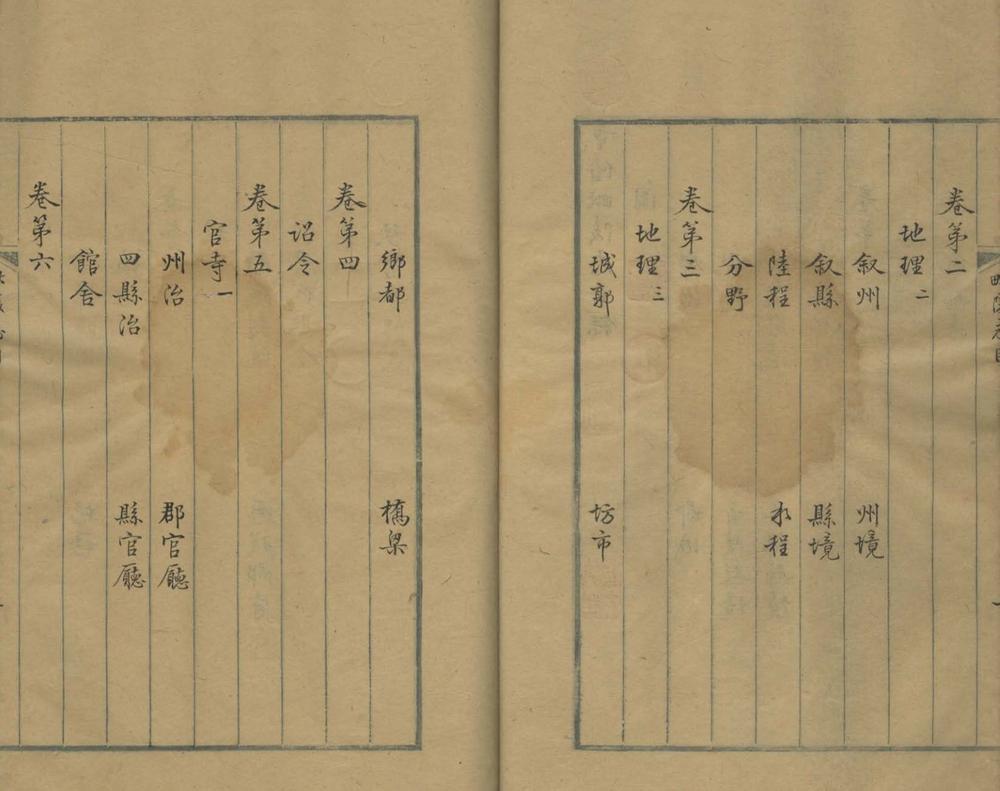 卷第二
地理二
叙州 州境
叙縣 縣境
陸程 水程
分野
卷第三
地理三
城郭 坊市
鄉都 橋梁
卷第四
詔令
卷第五
官寺一
州治 郡官廳
四縣治 縣官廳
館舍
卷第六